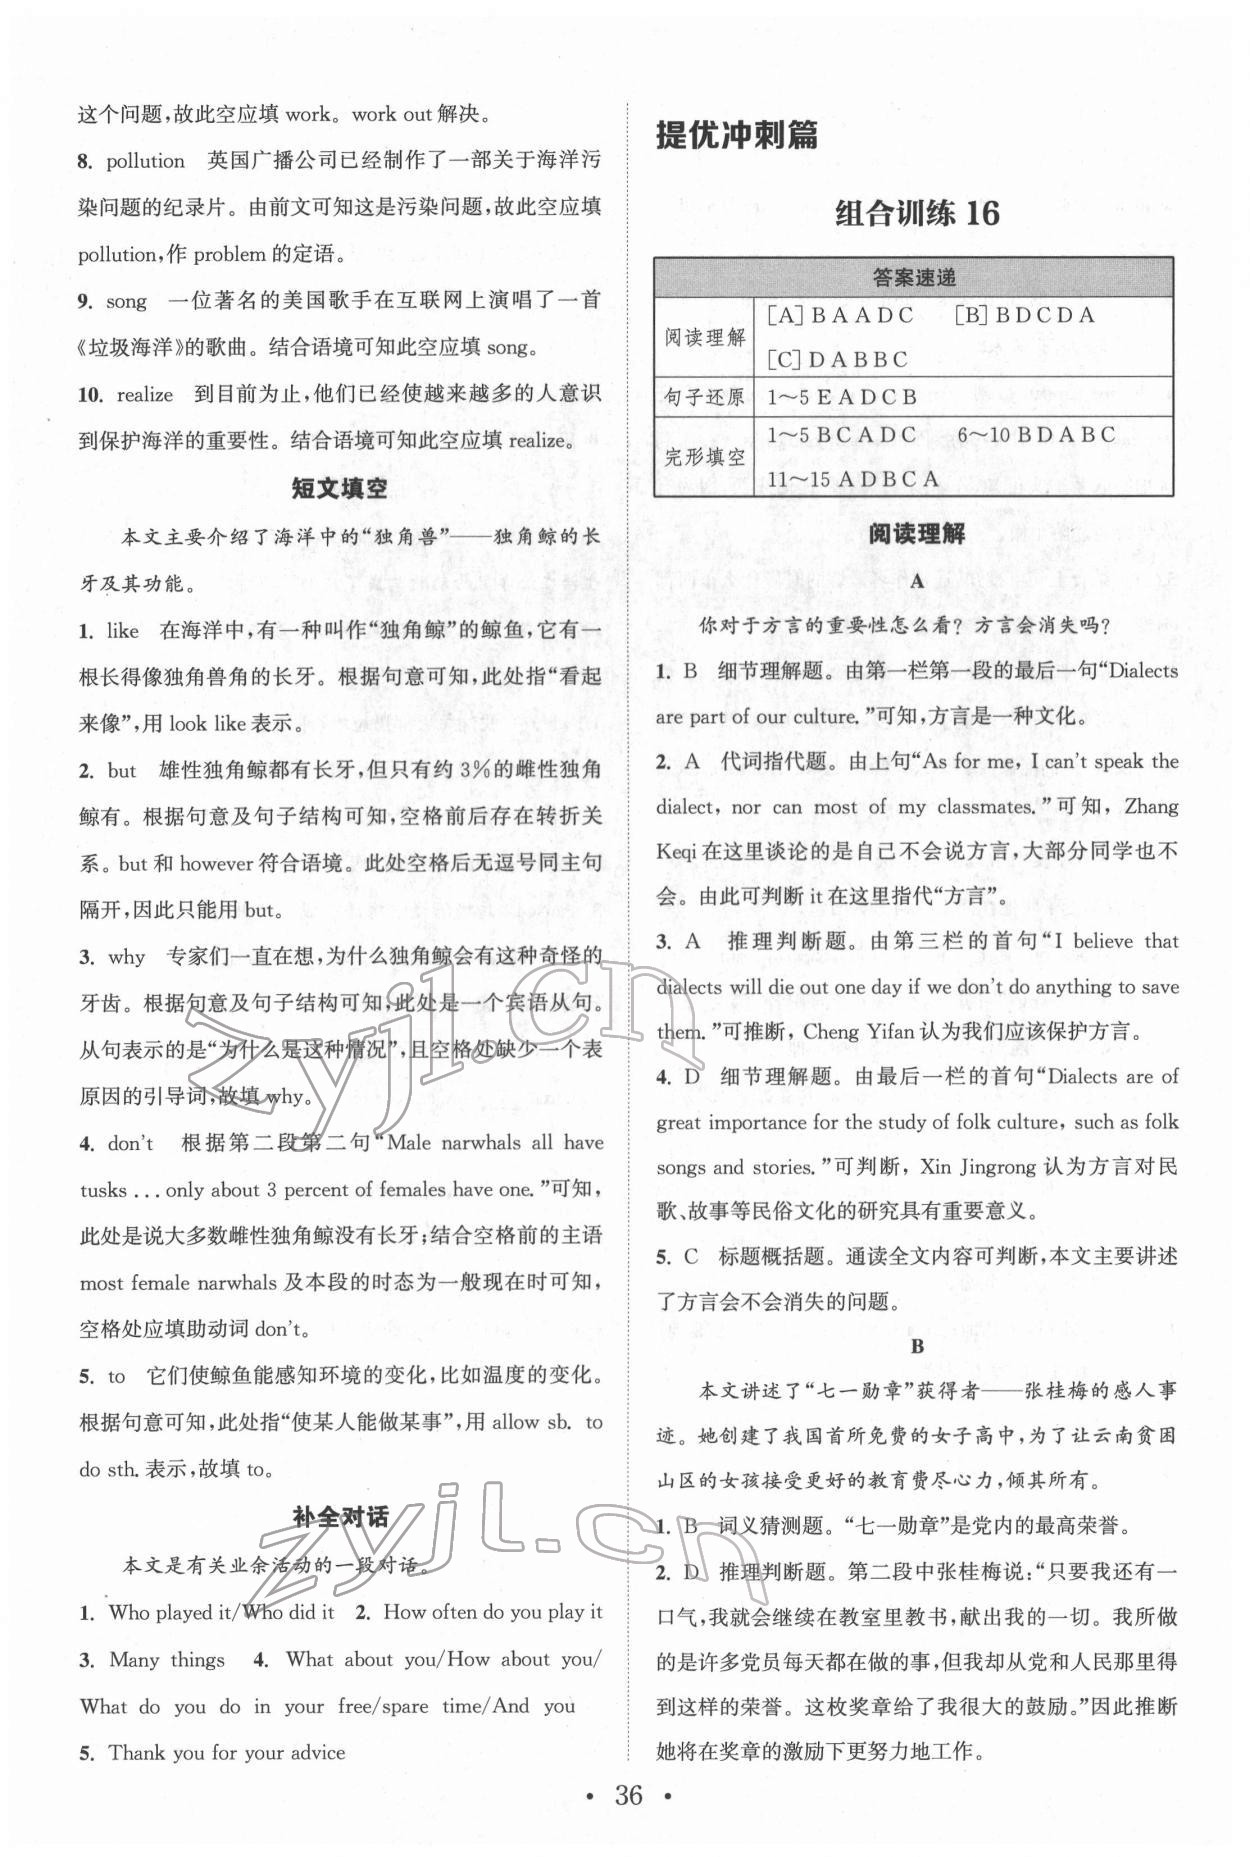 这个问题,故此空应填 work。work out 解决。
8. pollution 英国广播公司已经制作了一部关于海洋污
染问题的纪录片。由前文可知这是污染问题,故此空应填
pollution,作 problem 的定语。
9. song 一位著名的美国歌手在互联网上演唱了一首
《垃圾海洋》的歌曲。结合语境可知此空应填 song。
10. realize 到目前为止,他们已经使越来越多的人意识
到保护海洋的重要性。结合语境可知此空应填 realize。
短文填空
本文主要介绍了海洋中的“独角兽”——独角鲸的长
牙及其功能。
1. like 在海洋中,有一种叫作“独角鲸”的鲸鱼,它有一
根长得像独角兽角的长牙。根据句意可知,此处指“看起
来像”,用 look like 表示。
2. but 雄性独角鲸都有长牙,但只有约 3%的雌性独角
鲸有。根据句意及句子结构可知,空格前后存在转折关
系。but 和 however 符合语境。此处空格后无逗号同主句
隔开,因此只能用 but。
3. why 专家们一直在想,为什么独角鲸会有这种奇怪的
牙齿。根据句意及句子结构可知,此处是一个宾语从句。
从句表示的是“为什么是这种情况”,且空格处缺少一个表
原因的引导词,故填 why。
4. don't 根据第二段第二句“Male narwhals all have
tusks ... only about 3 percent of females have one. ”可知,
此处是说大多数雌性独角鲸没有长牙;结合空格前的主语
most female narwhals 及本段的时态为一般现在时可知,
空格处应填助动词 don't。
5. to 它们使鲸鱼能感知环境的变化,比如温度的变化。
根据句意可知,此处指“使某人能做某事”,用 allow sb. to
do sth. 表示,故填 to。
补全对话
本文是有关业余活动的一段对话。
1. Who played it/Who did it 2. How often do you play it
3. Many things 4. What about you/How about you/
What do you do in your free/spare time/And you
5. Thank you for your advice
提优冲刺篇
组合训练 16
答案速递
阅读理解 [A] B A A D C [B] B D C D A
[C] D A B B C
句子还原 1～5 E A D C B
完形填空 1～5 B C A D C 6～10 B D A B C
11～15 A D B C A
阅读理解
A
你对于方言的重要性怎么看？方言会消失吗？
1. B 细节理解题。由第一栏第一段的最后一句“Dialects
are part of our culture. ”可知,方言是一种文化。
2. A 代词指代题。由上句“As for me, I can't speak the
dialect, nor can most of my classmates. ”可知, Zhang
Keqi 在这里谈论的是自己不会说方言,大部分同学也不
会。由此可判断 it 在这里指代“方言”。
3. A 推理判断题。由第三栏的首句“I believe that
dialects will die out one day if we don't do anything to save
them. ”可推断, Cheng Yifan 认为我们应该保护方言。
4. D 细节理解题。由最后一栏的首句“Dialects are of
great importance for the study of folk culture, such as folk
songs and stories. ”可判断, Xin Jingrong 认为方言对民
歌、故事等民俗文化的研究具有重要意义。
5. C 标题概括题。通读全文内容可判断,本文主要讲述
了方言会不会消失的问题。
B
本文讲述了“七一勋章”获得者——张桂梅的感人事
迹。她创建了我国首所免费的女子高中,为了让云南贫困
山区的女孩接受更好的教育费尽心力,倾其所有。
1. B 词义猜测题。“七一勋章”是党内的最高荣誉。
2. D 推理判断题。第二段中张桂梅说:“只要我还有一
口气,我就会继续在教室里教书,献出我的一切。我所做
的是许多党员每天都在做的事,但我却从党和人民那里得
到这样的荣誉。这枚奖章给了我很大的鼓励。”因此推断
她将在奖章的激励下更努力地工作。
• 36 •
zyjl.cn
zyjl.cn